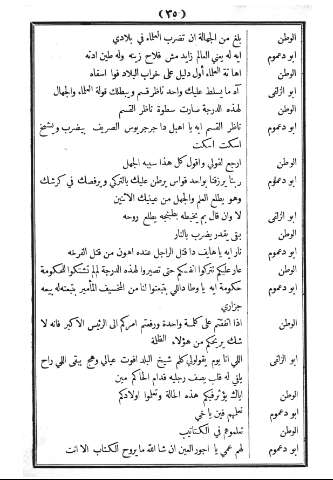 (٣٥)
الوطن بلغ من الجهالة ان تضرب العلماء في بلادي
ابو دعموم ايه له يعني العالم زايد مش فلاح زينا وله طين ادته
الوطن اهانة العلماء أول دليل على خراب البلاد فوا اسفاه
ابو الزلفى آه ما يسلط عليك واحد ناظر قسم ويبطلك قولة العلماء والجهال
الوطن لهذه الدرجة سارت سطوة ناظر القسم
ابو دعموم ناظر القسم ايه يا اهبل دا جرجريوس الصريف يضرب ويشخ اسكت اسكت
الوطن ارجع لقولي واقول كل هذا سببه الجهل
ابو دعموم ربنا يرزقنا بواحد قواس يرطن عليك بالتركي ويرفصك في كرشك وهو يطلع العلم والجهل من عينيك الاثنين
ابو الزلفى لا وان قال بم يخبطه بطبنجيه يطلع روحه
الوطن بقى يقدر يضرب بالنار
ابو دعموم نار ايه يا هايف دا قتل الراجل عنده اهون من قتل الفرخه
الوطن عار عليكم تتركوا انفسكم حتى تصيروا لهذه الدرجة لم لم تشتكوا للحكومة
ابو دعموم حكومة ايه يا وطا داللي بتبعتوا لنا من المأمير بتبعته له بيعه جزاري
الوطن اذا اتفقتم على كلمة واحدة ورفعتم امركم الى الرئيس الاكبر فانه لا شك يريحكم من هؤلاء الظلمة
ابو الزلفى اللي انا يوم يقولولي كلم شيخ البلد افوت عيالي وهج يبقى اللي راح يلقي له قلب يصف رجليه قدام الحاكم مين
الوطن اياك يؤثر فيكم هذه الحالة وتعلموا اولادكم
ابو دعموم نعلمهم فين ياخي
الوطن تعلموهم في الكتاتيب
ابو دعموم لهم عمي يا اجور العين ان شا الله ما يروح الكتاب الا انت